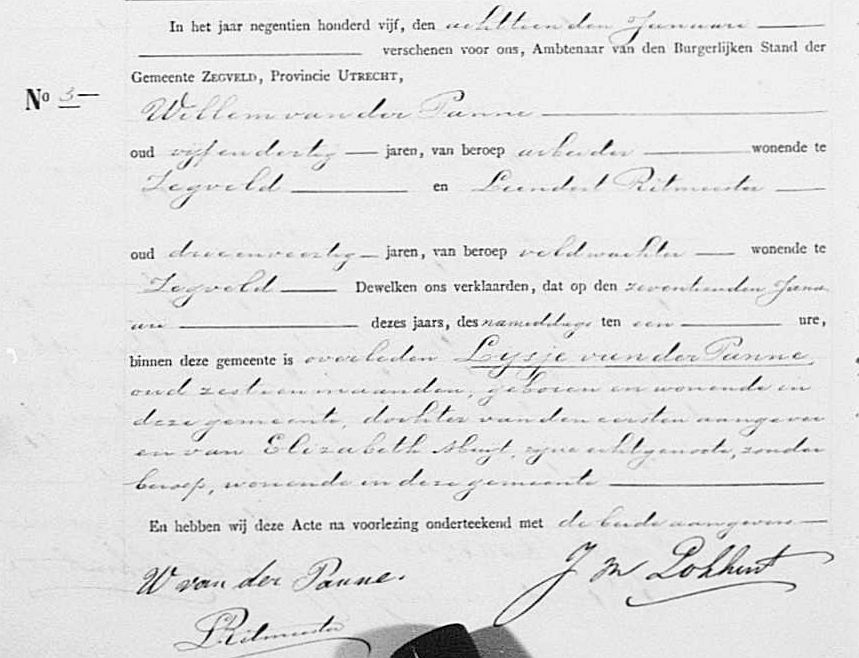 In het jaar negentien honderd vijf, den achttienden Januari
verschenen voor ons, Ambtenaar van den Burgerlijken Stand der
Gemeente ZEGVELD, Provincie UTRECHT,
No 3
Willem van der Panne
oud vyf en dertig jaren, van beroep arbeider wonende te
Zegveld en Leendert Ritmeester
oud drie en veertig jaren, van beroep veldwachter wonende te
Zegveld Dewelken ons verklaarden, dat op den zeventienden Janu
ari dezes jaars, des nameddags ten een ure,
binnen deze gemeente is overleden Lysje van der Panne,
oud zestien maanden, geboren en wonende in
deze gemeente, dochter van den eersten aangever
en van Elizabeth, zyne echtgenoote, zonder
beroep, wonende in deze gemeente
En hebben wij deze Acte na voorlezing onderteekend met de beide aangevers
W van der Panne.
J M
LRitmeester